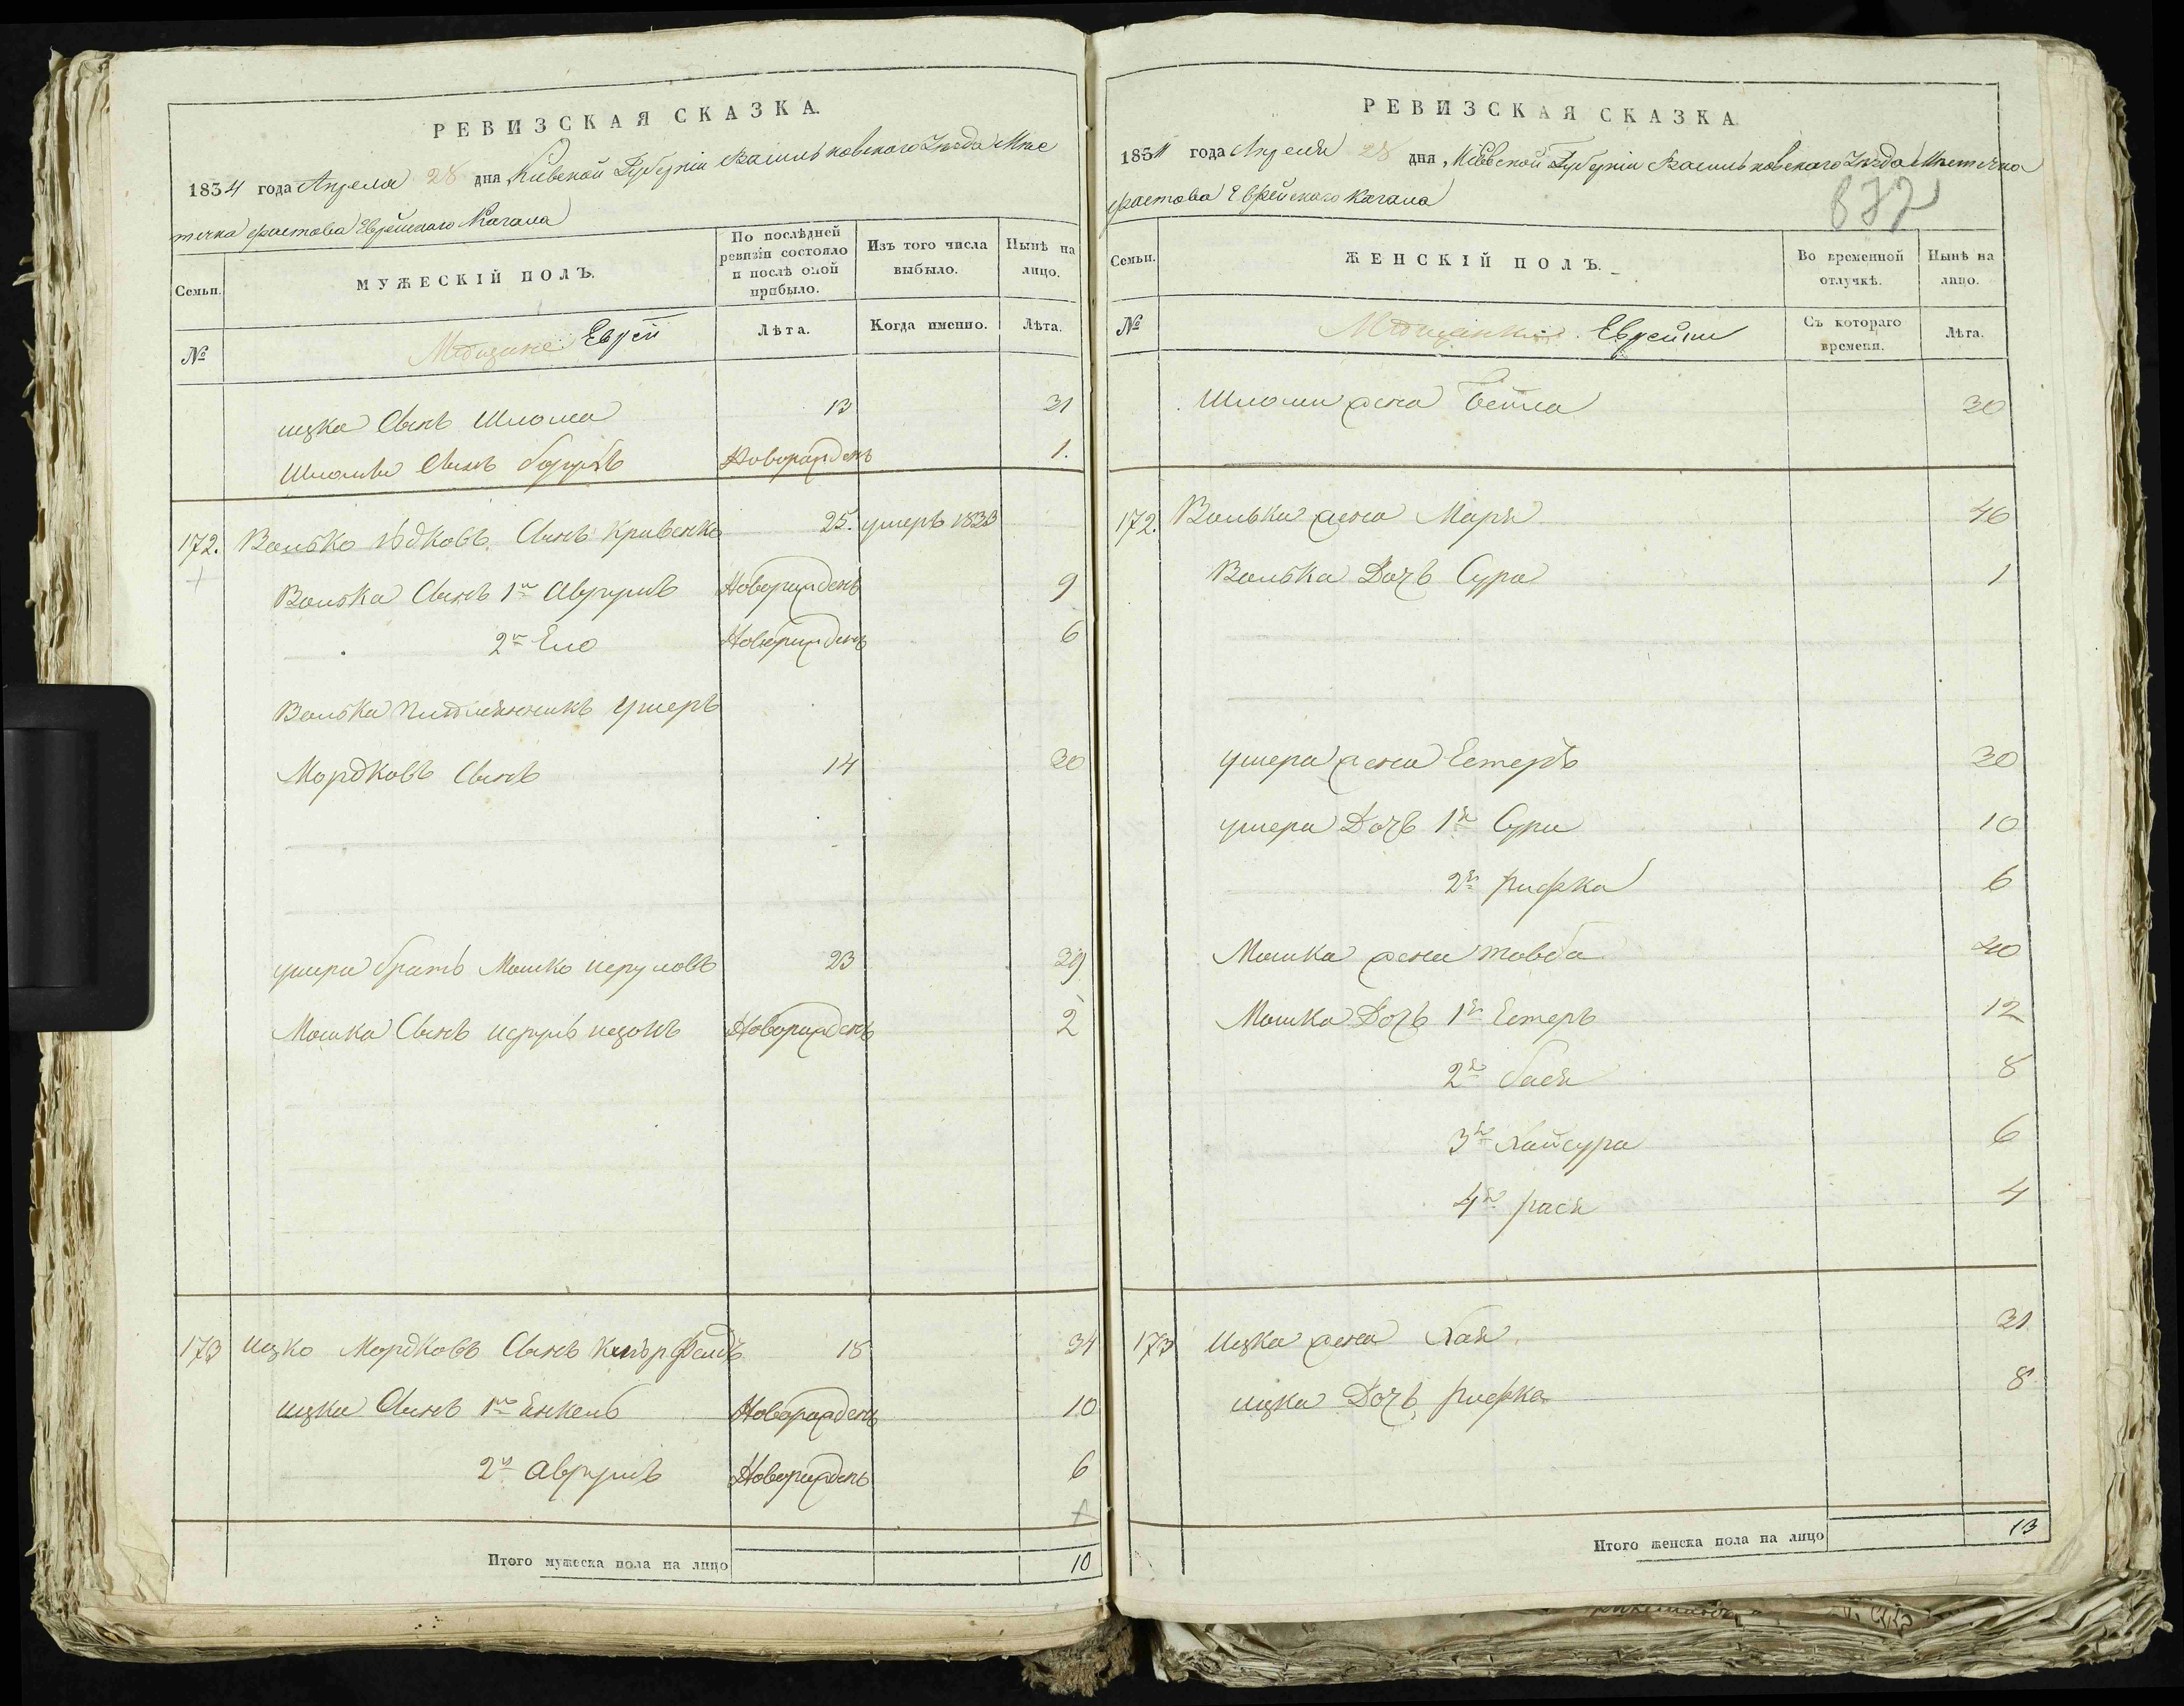 РЕВИЗСКАЯ СКАЗКА.
1834 года Апреля 28 дня, Киевской Губерніи Васильковскаго Уезда Мѣс
течка фастова Еврейскаго Кагала
Семьи.
МУЖЕСКІЙ ПОЛЪ.
По послѣдней ревизіи состояло и послѣ оной прибыло.
Изъ того числа выбыло.
Нынѣ на лицо.
№
Мещане Евреи
Лѣта.
Когда именно.
Лѣта.
ицка Сынъ Шлома 13 31
Шломы Сынъ борухъ Новорожденъ 1.
172. Волько Сынъ Кривенко 25. умеръ 1833
Волька Сынъ 1й Аврумъ Новорожденъ 9
2й Ело Новорожденъ 6
Волька племянникъ Ушеръ
Мордковъ Сынъ 14 30
ушера братъ Мошко 23 39
Мошка Сынъ Новорожденъ 2
173 ицко Мордковъ Сынъ 18 34
ицка Сынъ 1й Янкель Новорожденъ 10
2й Аврумъ Новорожденъ 6
Итого мужеска пола на лицо 10
РЕВИЗСКАЯ СКАЗКА
1834 года Апреля 28 дня, Кіевской Губерніи Васильковскаго Уезда Местечка
фастова Еврейскаго Кагала
872
Семьи.
ЖЕНСКІЙ ПОЛЪ.
Во временной отлучкѣ.
Нынѣ на лицо.
№
Мещанки Еврейки
Съ котораго времени.
Лѣта.
Шломы жена Бейла 30
172. Волька жена Маря 46
Волька Дочь Сура 1
ушера жена Естеръ 30
ушера Дочь 1я Сура 10
2я рифка 6
Мошка жена товба 40
Мошка Дочь 1я Естеръ 12
2я бася 8
3я хайсура 6
4я рася 4
173 Ицка жена Хая 31
ицка Дочь рифка 8
Итого женска пола на лицо 13